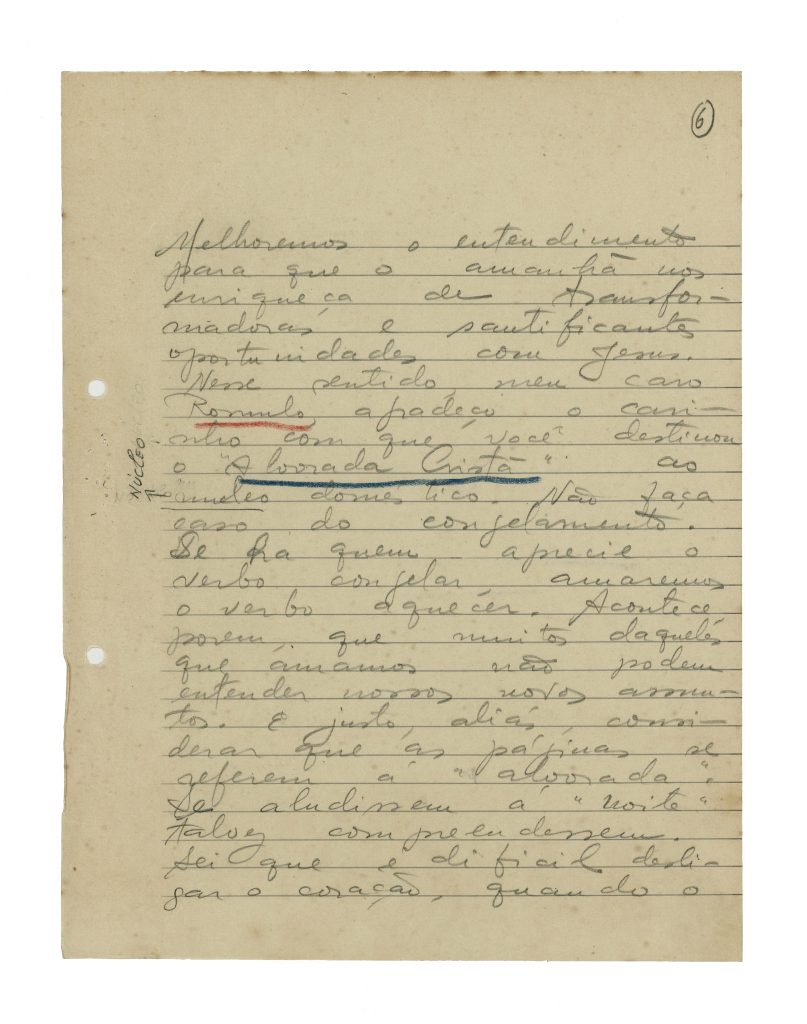 6
Melhoremos o entendimento
para que o amanhã nos
enriqueça de transfor-
madoras e santificantes
oportunidades com Jesus.
Nesse sentido, meu caro
Romulo, agradeço o cari-
nho com que você destinou
o "Alvorada Cristã" ao
NÚCLEO
nucleo domestico. Não faça
caso do congelamento.
Se há quem aprecie o
verbo congelar, amaremos
o verbo aquecer. Acontece
porem, que muitos daqueles
que amamos não podem
entender nossos novos assun-
tos. E justo, aliás, consi-
derar que as páginas se
referem á "alvorada".
Se aludissem á "noite"
talvez compreendessem.
Sei que é dificil desli-
gar o coração, quando o